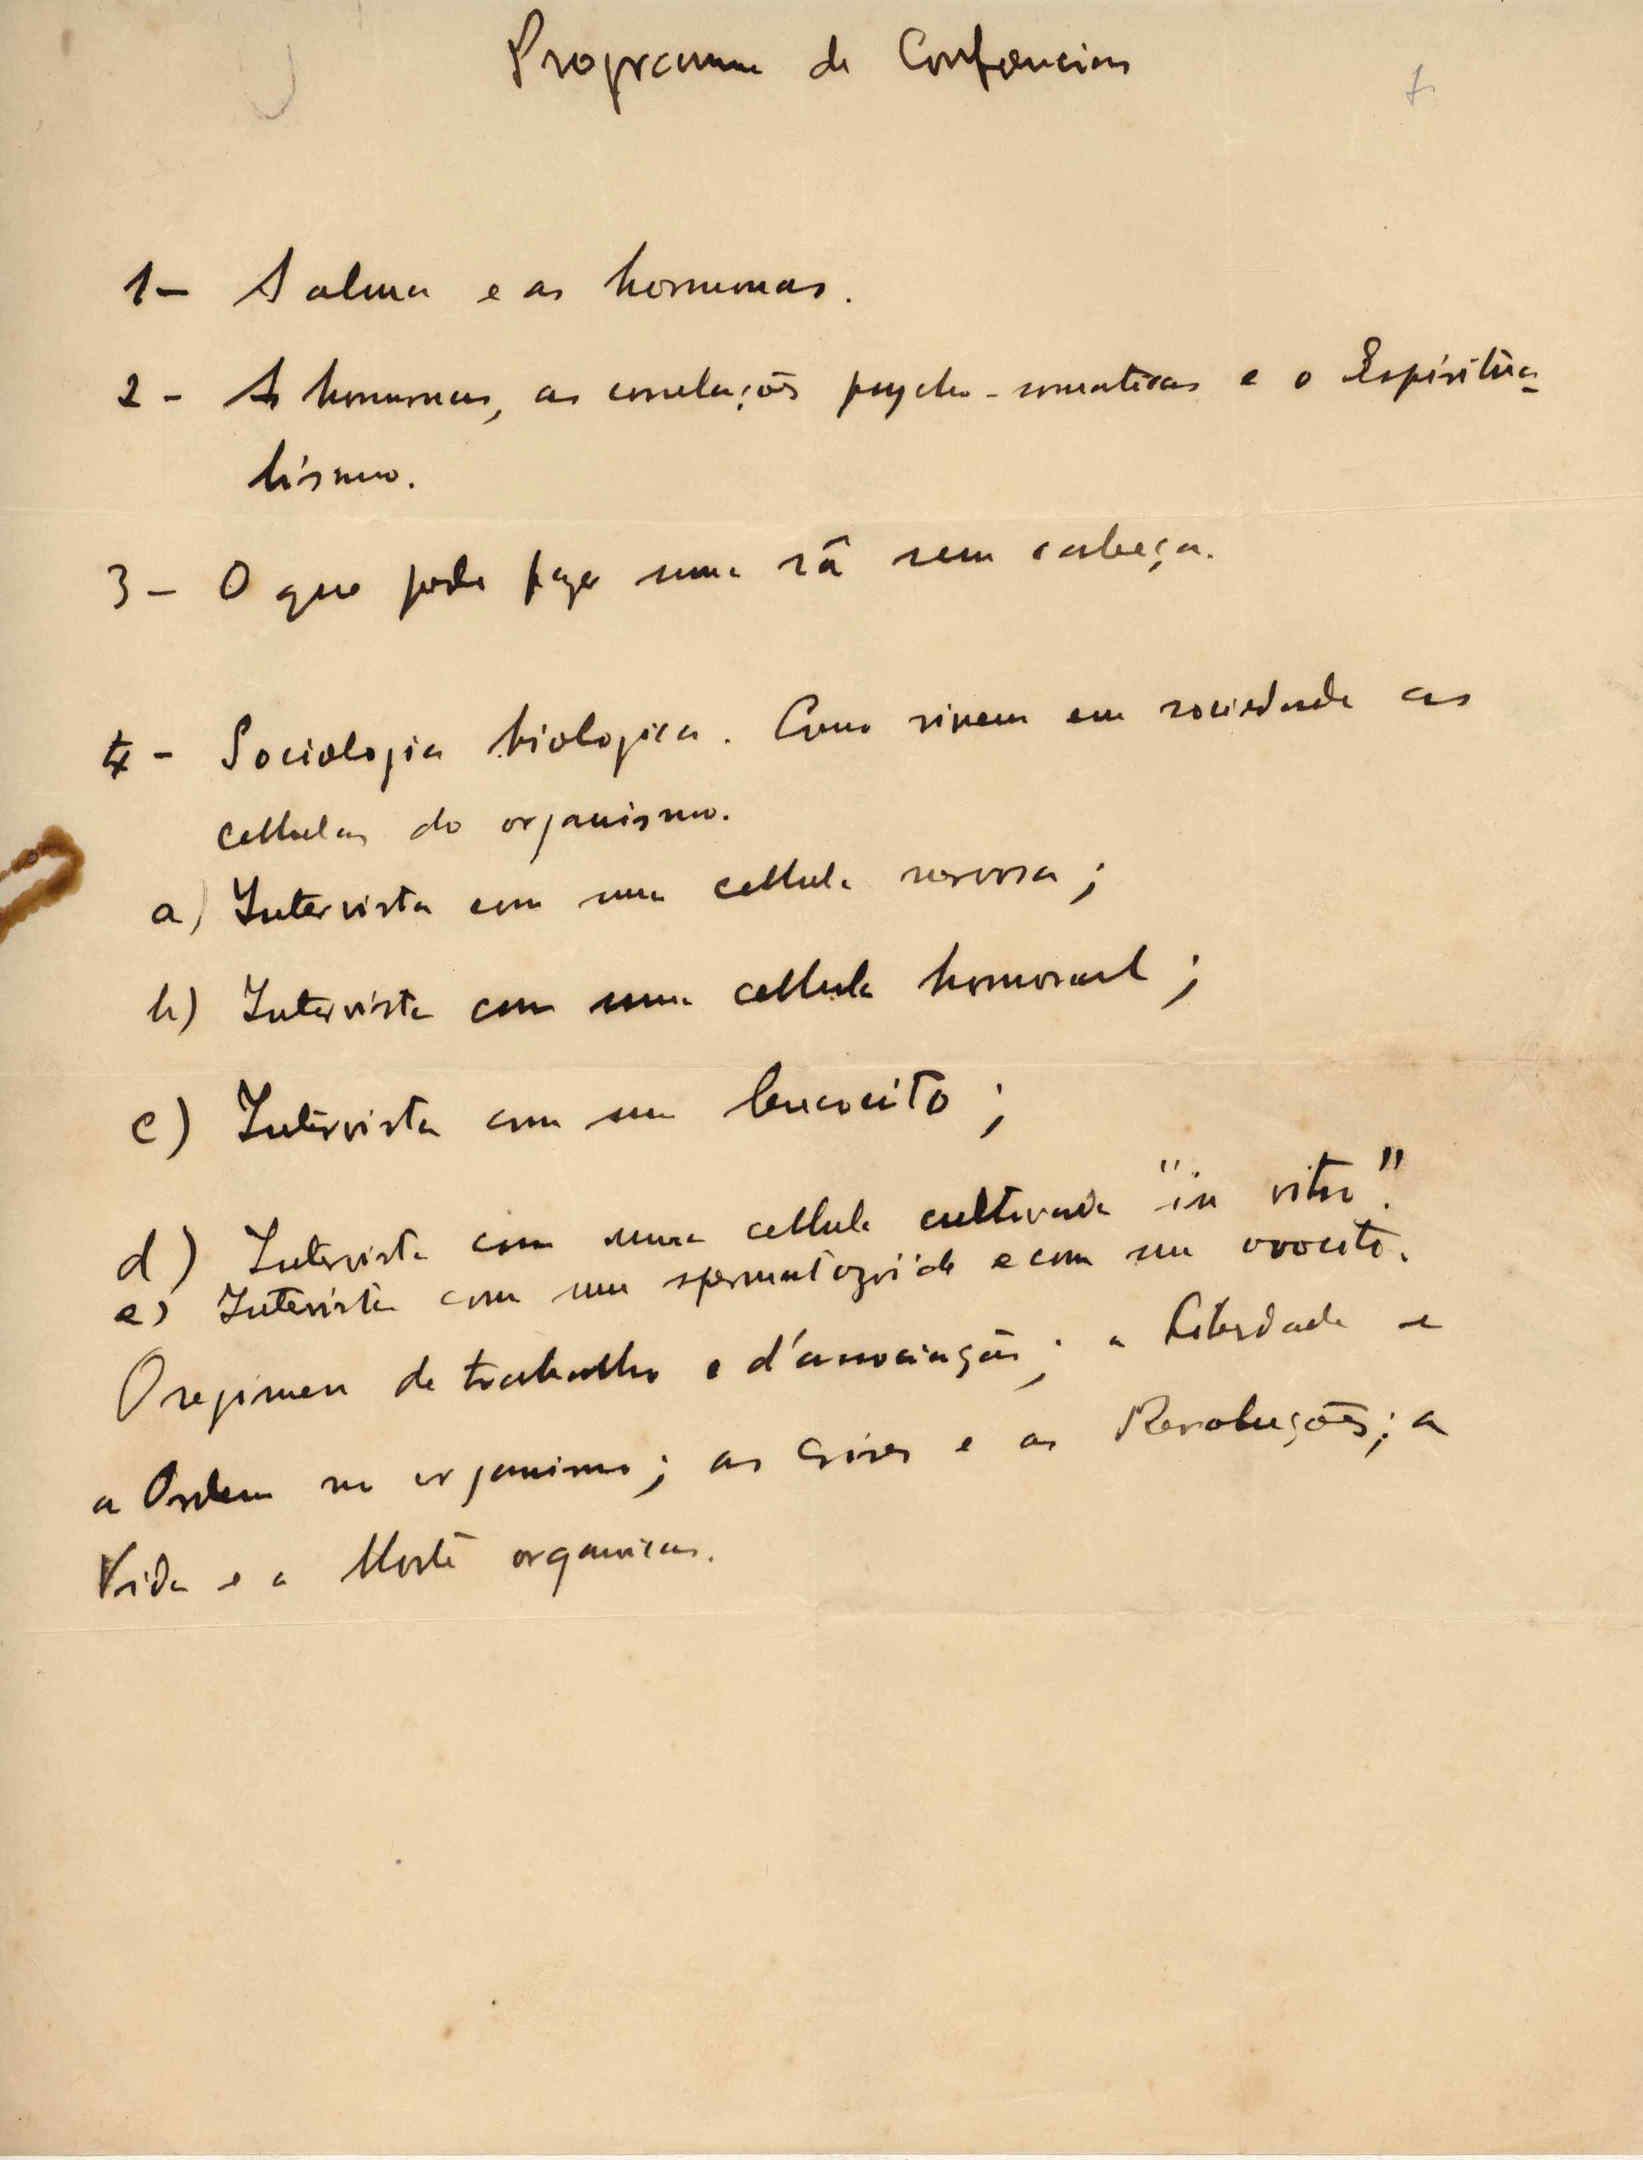 Programma de Conferencias
1 - A alma e as hormonas.
2 - As hormonas, as correlações psycho-somaticas e o Espiritua-
lismo.
3 - O que pode fazer uma rã sem cabeça.
4 - Sociologia biologica. Como vivem em sociedade as
cellulas do organismo.
a) Intervista com uma cellula nervosa;
b) Intervista com uma cellula hormonal;
c) Intervista com um leucocito;
d) Intervista com uma cellula cultivada "in vitro".
e) Intervista com um spermatozoide e com um ovocito.
O regimen de trabalho e d'associação; a Liberdade e
a Ordem no organismo; as Crises e as Revoluções; a
Vida e a Morte organicas.